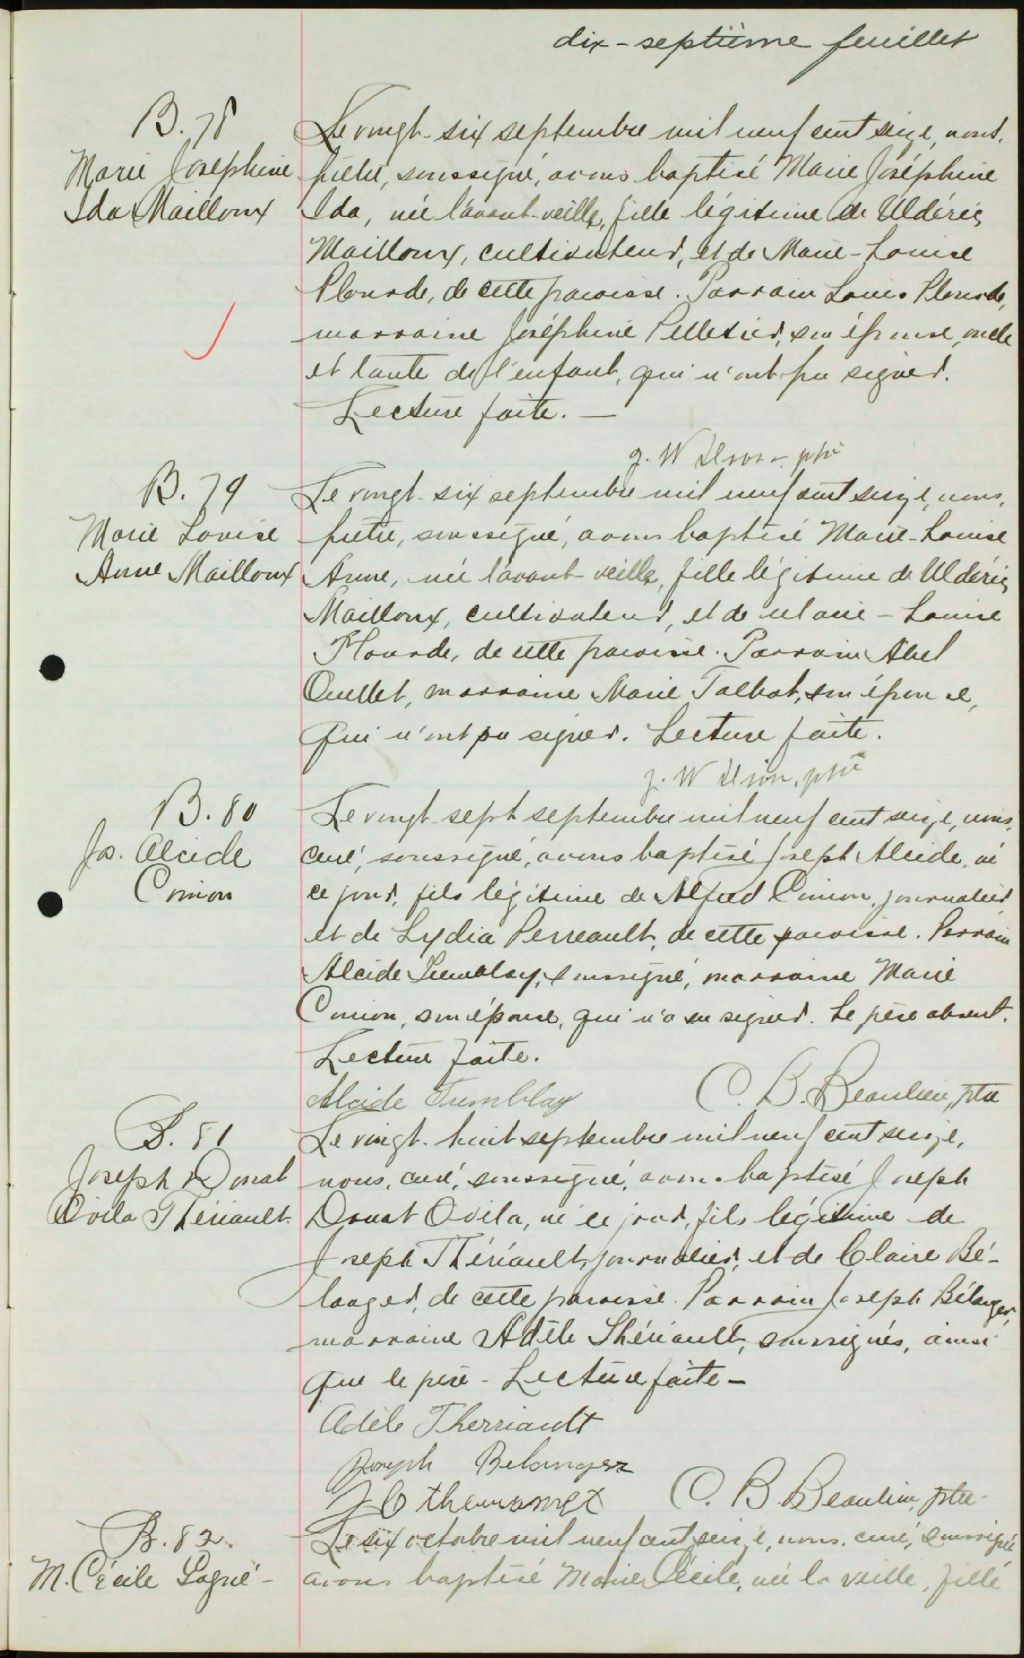 dix-septième feuillet
B. 78
Marie Joséphine
Ida Mailloux
Le vingt-six septembre mil neuf cent seize, nous,
prêtre, soussigné, avons baptisé Marie Joséphine
Ida, née l'avant-veille, fille légitime de Uldéric
Mailloux, cultivateur, et de Marie-Louise
Plourde, de cette paroisse. Parrain Louis Plourde,
marraine Joséphine Pelletier, son épouse, oncle
et tante de l'enfant, qui n'ont pu signer.
Lecture faite. —
J. Wilson ptre
B. 79
Marie Louise
Anne Mailloux
Le vingt-six septembre mil neuf cent seize, nous,
prêtre, soussigné, avons baptisé Marie-Louise
Anne, née l'avant-veille, fille légitime de Uldéric
Mailloux, cultivateur, et de Marie-Louise
Plourde, de cette paroisse. Parrain Abel
Ouellet, marraine Marie Talbot, son épouse,
qui n'ont pu signer. Lecture faite.
J. Wilson, ptre
B. 80
Jos. Alcide
Cimon
Le vingt-sept septembre mil neuf cent seize, nous,
curé, soussigné, avons baptisé Joseph Alcide, né
ce jour, fils légitime de Alfred Cimon, journalier
et de Lydia Perreault, de cette paroisse. Parrain
Alcide Tremblay, soussigné, marraine Marie
Cimon, son épouse, qui n'a su signer. Le père absent.
Lecture faite.
Alcide Tremblay
C. B. Beaulieu, ptre
B. 81
Joseph Donat
Ovila Thériault
Le vingt-huit septembre mil neuf cent seize,
nous, curé, soussigné, avons baptisé Joseph
Donat Ovila, né ce jour, fils légitime de
Joseph Thériault, journalier, et de Claire Bé-
langer, de cette paroisse. Parrain Joseph Bélanger,
marraine Adèle Thériault, soussignés, ainsi
que le père - Lecture faite -
Adèle Therriault
Joseph Belanger
C. B. Beaulieu, ptre
B. 82.
M. Cécile Gagné -
Le six octobre mil neuf cent seize, nous, curé, soussigné
avons baptisé Marie Cécile, née la veille, fille